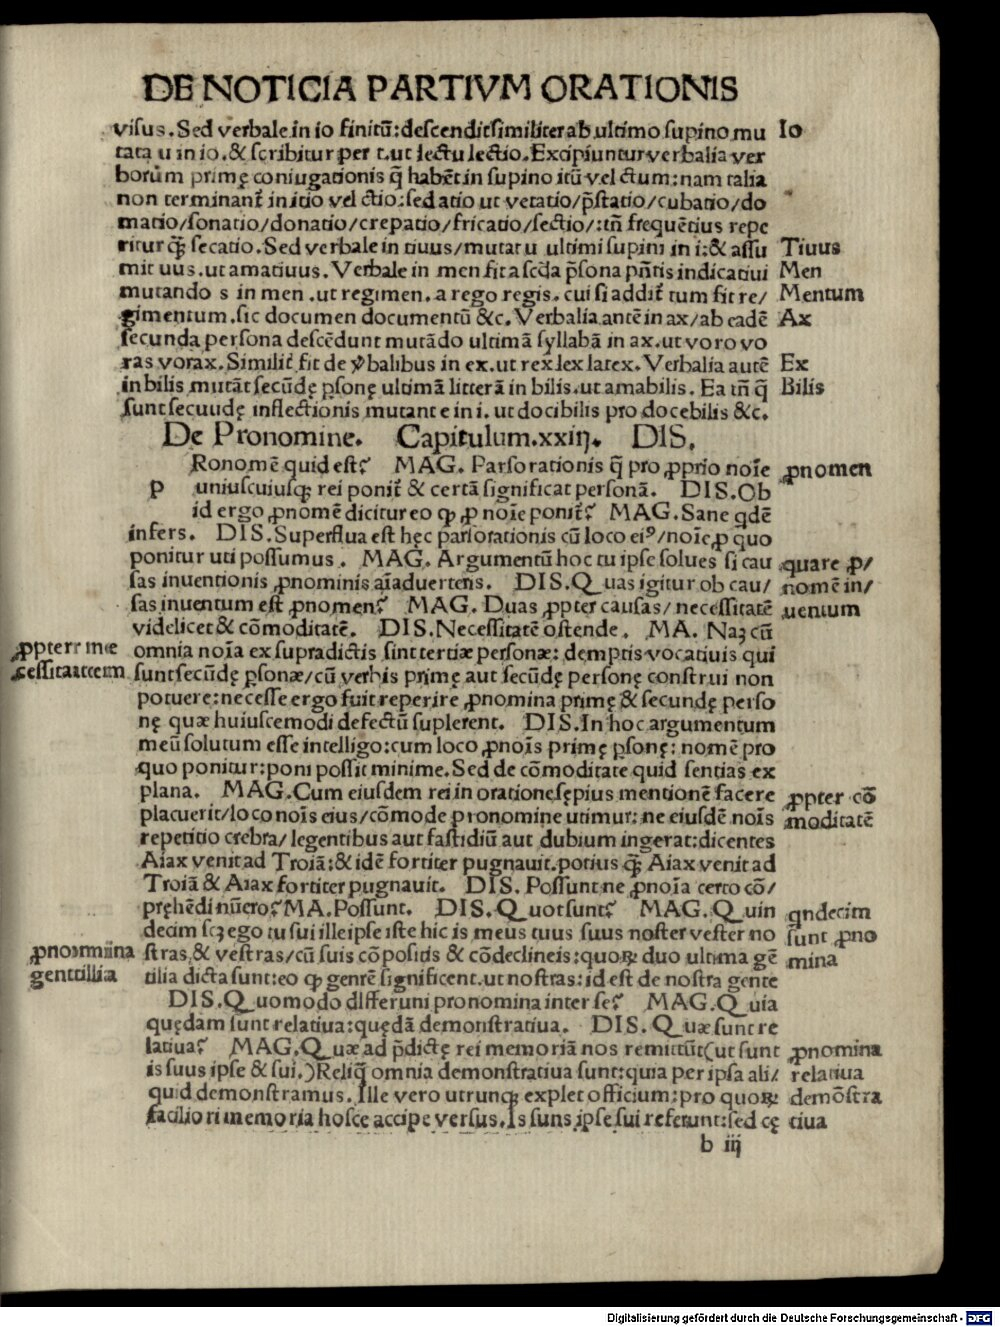 DE NOTICIA PARTIVM ORATIONIS
visus. Sed verbale in io finitū: descendit similiter ab ultimo supino mu Io
tata u in io. & scribitur per t. ut lectu lectio. Excipiuntur verbalia ver
borum primę coniugationis q̄ habēt in supino itū vel ctum: nam talia
non terminant᷑ in itio vel ctio: sed atio ut vetatio/p̄statio/cubatio/do
matio/sonatio/donatio/crepatio/fricatio/sectio/: tn̄ frequētius repe
ritur q̄ȝ secatio. Sed verbale in tiuus/mutat u ultimi supini in i: & assu Tiuus
mit uus. ut amatiuus. Verbale in men fit a scd̄a p̄sona pn̄tis indicatiui Men
mutando s in men. ut regimen. a rego regis. cui si addit᷑ tum fit re/ Mentum
gimentum. sic documen documentū &c. Verbalia antē in ax/ab eadē Ax
secunda persona descēdunt mutādo ultimā syllabā in ax. ut voro vo
ras vorax. Similit᷑ fit de v̓balibus in ex. ut rex lex latex. Verbalia autē Ex
in bilis mutāt secūdę ꝑsonę ultimā litterā in bilis. ut amabilis. Ea tn̄ q̄ Bilis
sunt secuudę inflectionis mutant e in i. ut docibilis pro docebilis &c.
De Pronomine. Capitulum.xxiij. DIS.
Ronomē quid est? MAG. Pars orationis q̄ pro ꝓprio noīe ꝓnomen
p uniuscuiusqȝ rei ponit᷑ & certā significat personā. DIS. Ob
id ergo ꝓnomē dicitur eo ꝙ ꝓ noīe ponit᷑? MAG. Sane qdē
infers. DIS. Superflua est hęc pars orationis cū loco eiꝰ/noīe ꝓ quo
ponitur uti possumus. MAG. Argumentū hoc tu ipse solues si cau quare ꝓ/
sas inuentionis ꝓnominis aīaduertens. DIS. Quas igitur ob cau/ nomē in/
sas inuentum est ꝓnomen? MAG. Duas ꝓpter causas/necessitatē uentum
videlicet & cōmoditatē. DIS. Necessitatē ostende. MA. Naȝ cū
omnia noīa ex supradictis sint tertiæ personæ: demptis vocatiuis qui
sunt secūdę ꝑsonæ/cū verbis primę aut secūdę personę construi non
potuere: necesse ergo fuit reperire ꝓnomina primę & secundę perso
nę quæ huiuscemodi defectū suplerent. DIS. In hoc argumentum
meū solutum esse intelligo: cum loco ꝓnoīs primę ꝑsonę: nomē pro
quo ponitur: poni possit minime. Sed de cōmoditate quid sentias ex
plana. MAG. Cum eiusdem rei in oratione sępius mentionē facere ꝓpter cō
placuerit/loco noīs eius/cōmode pronomine utimur: ne eiusdē noīs moditatē
repetitio crebra/legentibus aut fastidiū aut dubium ingerat: dicentes
Aiax venit ad Troiā: & idē fortiter pugnauit. potius q̄ȝ Aiax venit ad
Troiā & Aiax fortiter pugnauit. DIS. Possunt ne ꝓnoīa certo cō/
pręhēdi nūero? MA. Possunt. DIS. Quot sunt? MAG. Quin qndecim
decim scȝ ego tu sui ille ipse iste hic is meus tuus suus noster vester no sunt ꝓno
stras & vestras/cū suis cōpositis & cōdeclineis: quoꝝ duo ultima gē mina
tilia dicta sunt: eo ꝙ genrē significent. ut nostras: id est de nostra gente
DIS. Quomodo differuni pronomina inter se? MAG. Quia
quędam sunt relatiua: quędā demonstratiua. DIS. Quæ sunt re
latiua? MAG. Quæ ad p̄dictę rei memoriā nos remittūt (ut sunt ꝓnomina
is suus ipse & sui.) Reliq̄ omnia demonstratiua sunt: quia per ipsa ali/ relatiua
quid demonstramus. Ille vero utrunqȝ explet officium: pro quoꝝ demōstra
faciliori memoria hosce accipe versus. Is suns ipse sui referunt: sed cę tiua
b iij
Digitalisierung gefördert durch die Deutsche Forschungsgemeinschaft - DFG